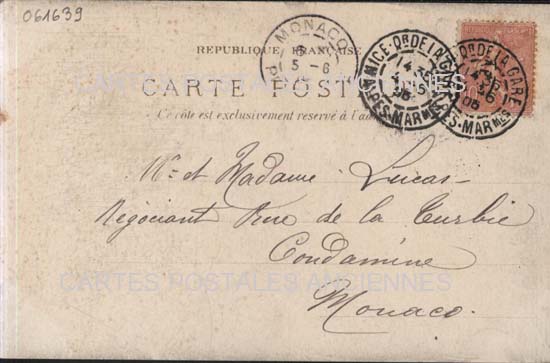 061639
MONACO
5 - 6
RÉPUBLIQUE FRANÇAISE
CARTE POST
Ce côté est exclusivement réservé à l'ad
NICE-Qr DE LA GARE
ALPES-MARmes
NICE-Qr DE LA GARE
ALPES-MARmes
Mr et Madame Lucas-
Négociant Rue de la Turbie
Condamine
Monaco.
CARTES POSTALES ANCIENNES
CARTES POSTALES ANCIENNES